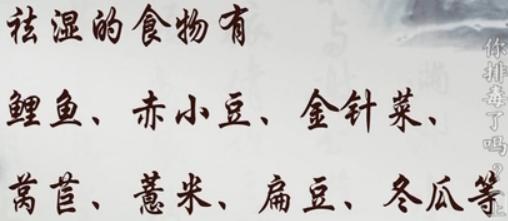 祛湿的食物有
鲤鱼、赤小豆、金针菜、
莴苣、薏米、扁豆、冬瓜等
你排毒了吗?